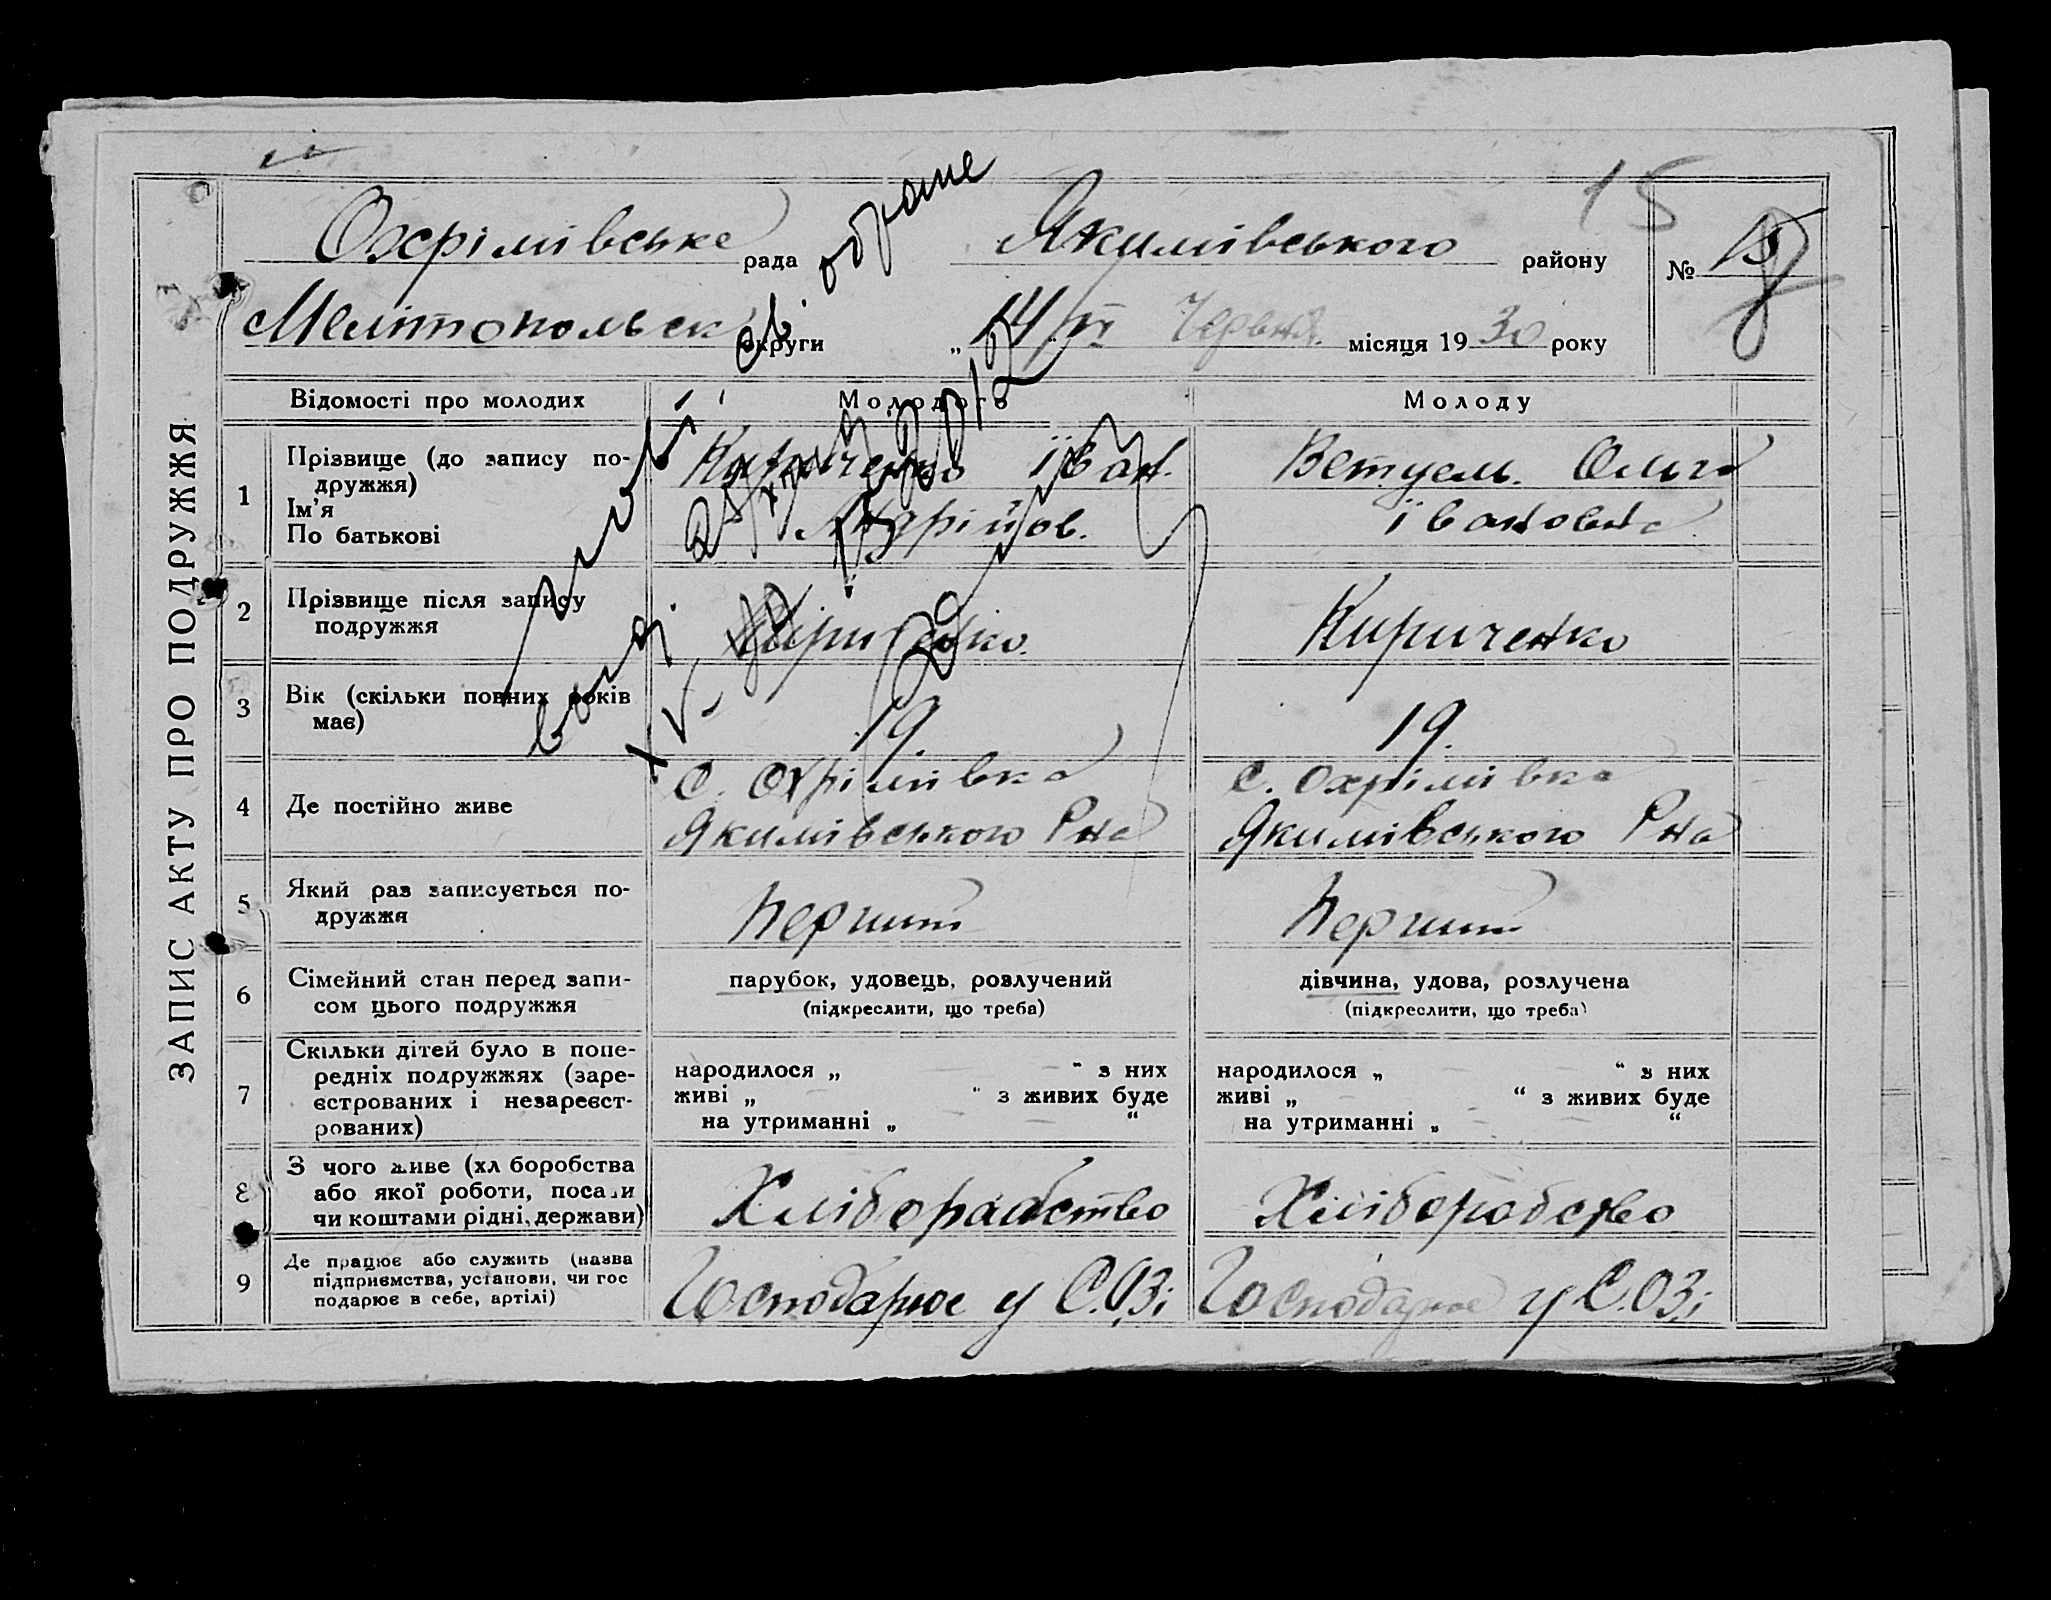 15
Охрімівське рада Якимівського району № 15
Мелітопольськ округи „14/VI“ Червня місяця 1930 року
ЗАПИС АКТУ ПРО ПОДРУЖЖЯ
Відомості про молодих Молодого Молоду
1 Прізвище (до запису по-
дружжя)
Ім'я
По батькові
Кириченко Іван.
Андрійов.
Ветуель. Ольга
Івановна
2 Прізвище після запису
подружжя
Кириченко.
Кириченко
3 Вік (скільки повних років
має)
19.
19.
4 Де постійно живе
С. Охрімівка
Якимівського Рна
С. Охрімівка
Якимівського Рна
5 Який раз записується по-
дружжя
Перший
Перший
6 Сімейний стан перед запи-
сом цього подружжя
парубок, удовець, розлучений
(підкреслити, що треба)
дівчина, удова, розлучена
(підкреслити, що треба)
7 Скільки дітей було в попе-
редніх подружжях (заре-
єстрованих і незареєст-
рованих)
народилося „ “ з них
живі „ “ з живих буде
на утриманні „ “
народилося „ “ з них
живі „ “ з живих буде
на утриманні „ “
8 З чого живе (хл боробства
або якої роботи, посади
чи коштами рідні, держави)
Хліборобство
Хліборобство
9 Де працює або служить (назва
підприємства, установи, чи гос
подарює в себе, артілі)
Господарює у С.ОЗі
Господарює у С.ОЗі